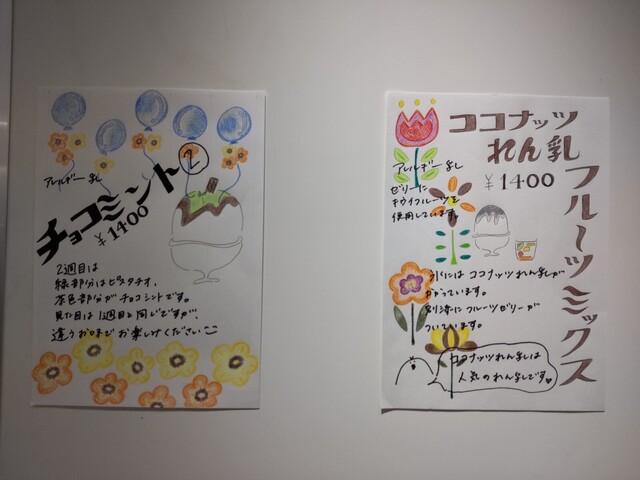 チョコミント②
アレルギー なし
¥1400
2週目は
緑部分はピスタチオ、
茶色部分がチョコミントです。
見た目は1週目と同じですが、
違うお味までお楽しみください
ココナッツ
れん乳
フルーツミックス
¥1400
アレルギーなし
ゼリーに
キウイフルーツを
使用しています。
氷にはココナッツれん乳が
かかっています。
別添にフルーツゼリーが
ついています。
ココナッツれん乳は
人気のれん乳です♥